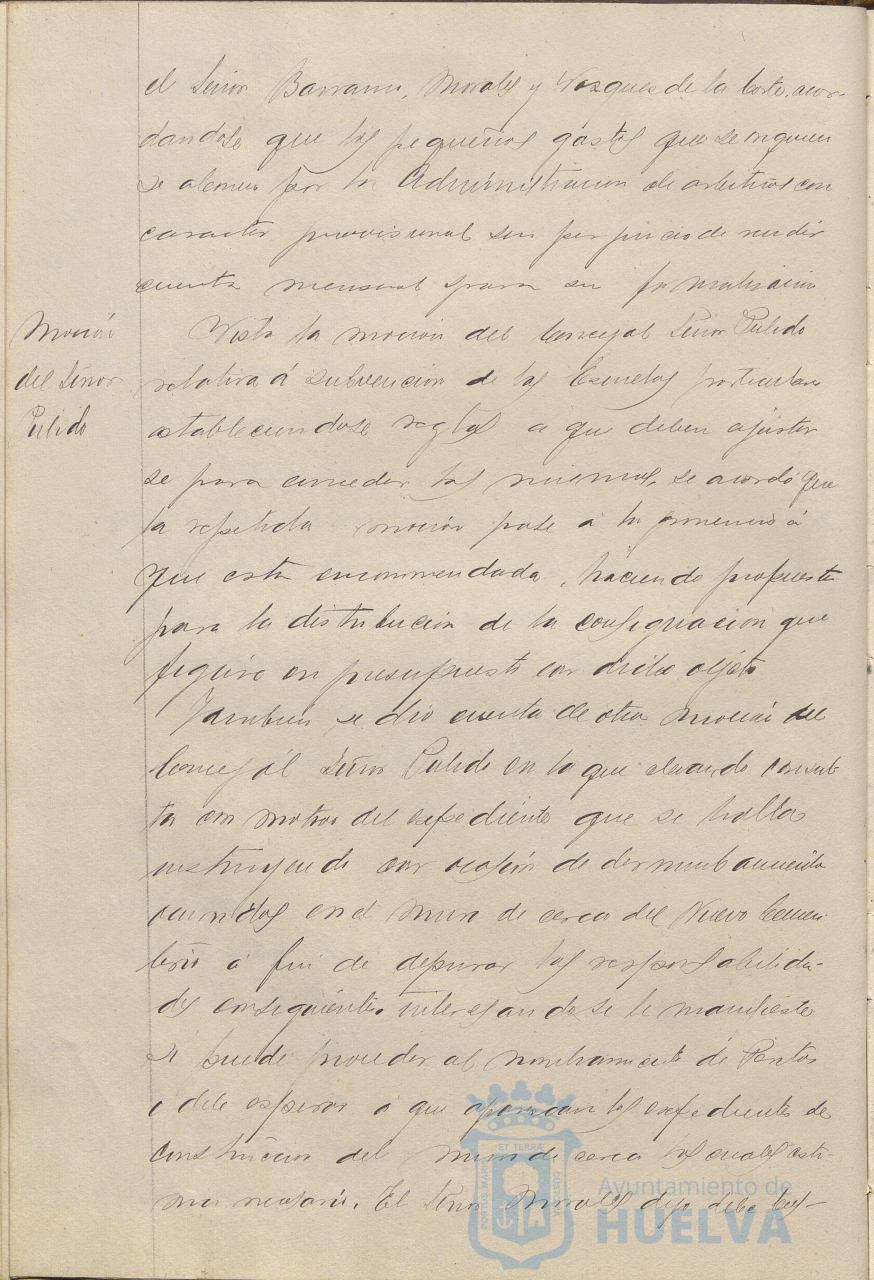 el Señor Barranco, Morales y Vazquez de la Corte, acor-
dandose que los pequeños gastos que se originen
se abonen por la Administracion de arbitrios con
caracter provisional sin perjuicio de rendir
cuenta mensual para su formalización
Moción
del Señor
Pulido
Vista la moción del Concejal Señor Pulido
relativa á subvencion de las Escuelas particulares
estableciendose reglas a que deben ajustar
se para conceder las mismas, se acordó que
la repetida moción pase á la ponencia á
que está encommendada, haciendo propuesta
para la distribución de la consignacion que
figura en presupuesto con dicho objeto
Tambien se dió cuenta de otra moción del
Concejal Señor Pulido en la que elevando consul
ta con motivo del expediente que se halla
instruyendo con ocasión de derrumbamiento
ocurridos en el muro de cerca del Nuevo Cemen
terio á fin de depurar las responsabilida-
des consiguientes interesando se le manifieste
si puede proceder al nombramiento de Peritos
ó debe esperar a que aparezcan los expedientes de
construccion del muro de cerca los cuales esti-
ma necesario. El Señor Morales dijo debe bus-
PORTUS MARIS ET TERRÆ CUSTODIA
Ayuntamiento de
HUELVA